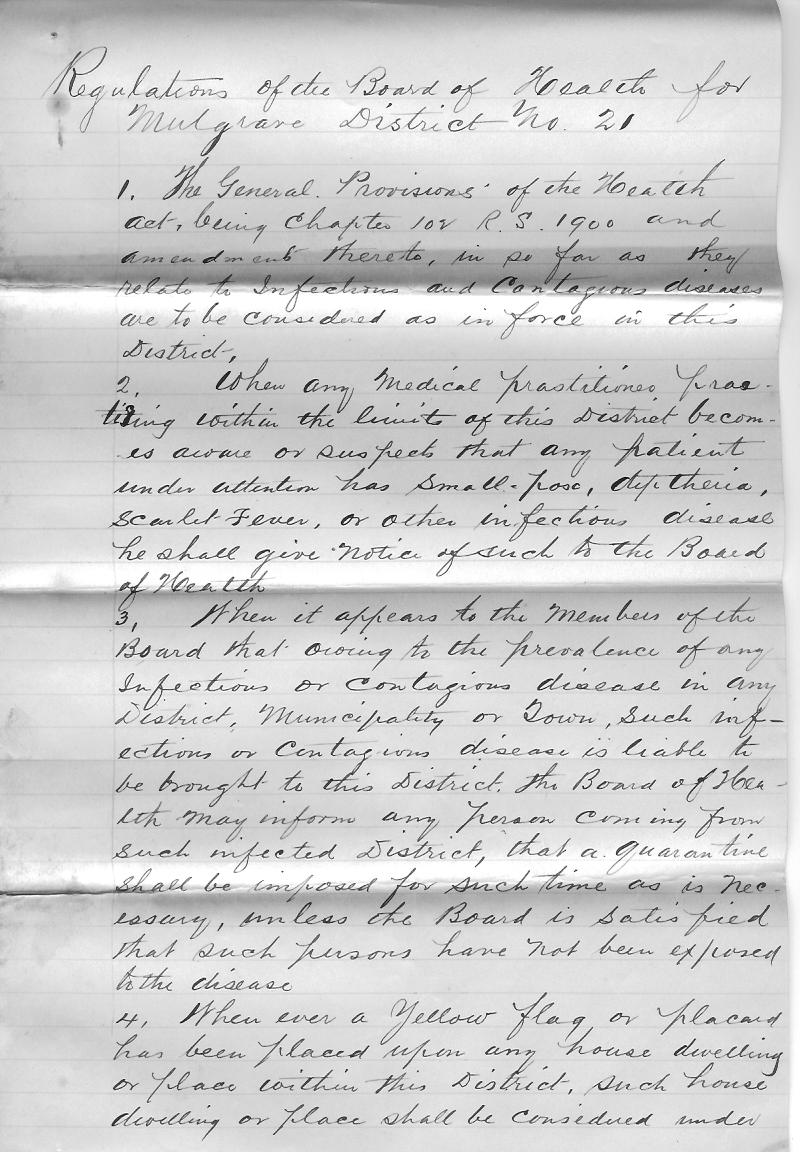 Regulations of the Board of Health for
Mulgrave District No. 21
1. The General Provisions of the Health
act, being Chapter 102 R. S. 1900 and
amendments thereto, in so far as they
relate to Infectious and Contagious diseases
are to be considered as in force in this
District,
2. When any Medical prastitioner prac-
tising within the limits of this District becom-
es aware or suspects that any patient
under attention has Small-pox, diptheria,
Scarlet Fever, or other infectious disease
he shall give Notice of such to the Board
of Health
3, When it appears to the Members of the
Board that owing to the prevalence of any
Infectious or contagious disease in any
District, Municipality or Town, such inf-
ectious or Contagious disease is liable to
be brought to this District, the Board of Hea-
lth may inform any person coming from
such infected District, that a quarantine
shall be imposed for such time as is nec-
essary, unless the Board is satisfied
that such persons have not been exposed
to the disease
4, When ever a Yellow flag or placard
has been placed upon any house dwelling
or place within this District, such house
dwelling or place shall be considered under